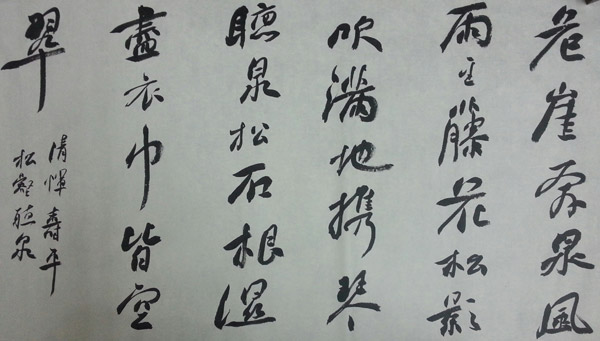 危崖奔泉風
雨至藤花松影
吹滿地携琴
聽泉松石根濕
盡衣巾皆空
翠
清惲壽平
松壑聽泉